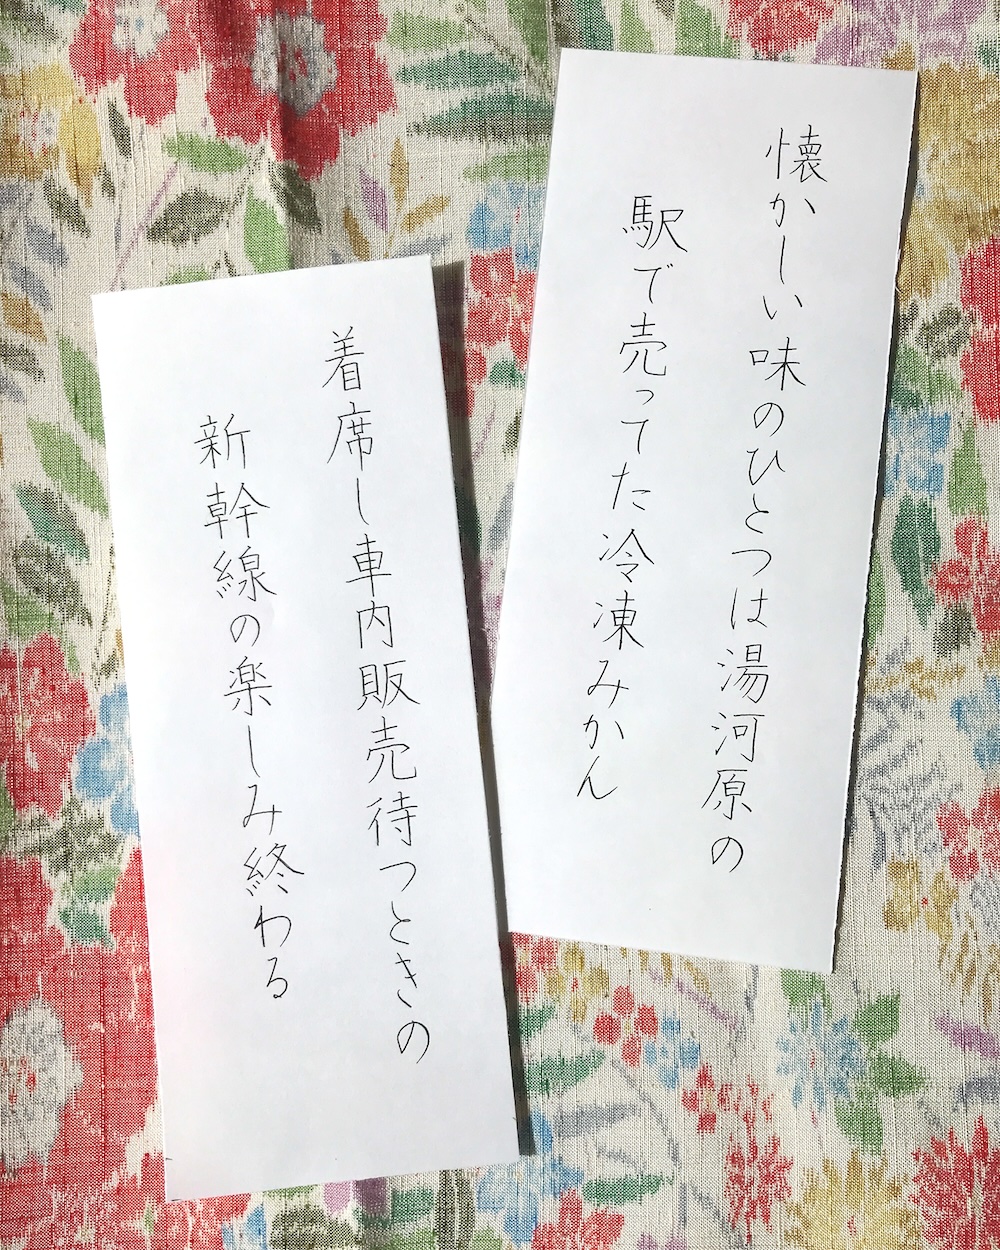 懐かしい味のひとつは湯河原の
駅で売ってた冷凍みかん
着席し車内販売待つときの
新幹線の楽しみ終わる